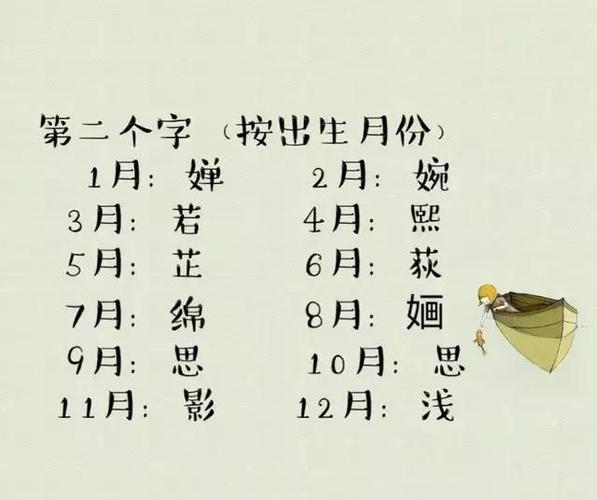 第二个字（按出生月份）
1月：婵 2月：婉
3月：若 4月：熙
5月：芷 6月：荻
7月：绵 8月：婳
9月：思 10月：思
11月：影 12月：浅